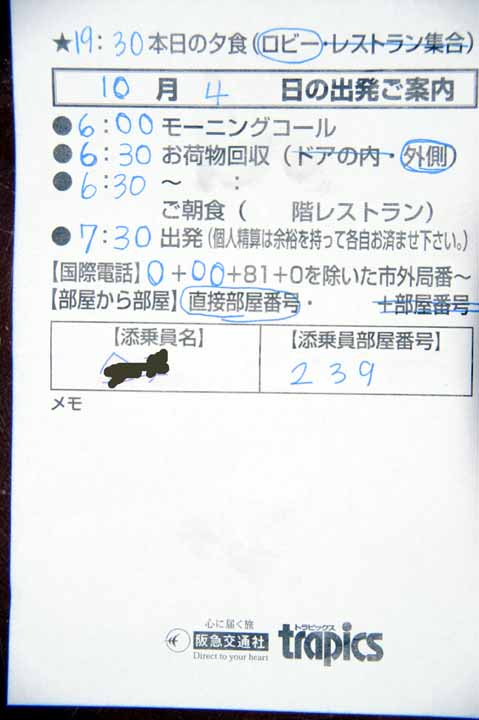 ★19:30本日の夕食(ロビー・レストラン集合)
10月4日の出発ご案内
●6:00モーニングコール
●6:30お荷物回収(ドアの内・外側)
●6:30～　:
ご朝食(　階レストラン)
●7:30出発(個人精算は余裕を持って各自お済ませ下さい。)
【国際電話】0+00+81+0を除いた市外局番～
【部屋から部屋】直接部屋番号・　+部屋番号
【添乗員名】 【添乗員部屋番号】
239
メモ
心に届く旅
阪急交通社
Direct to your heart
トラピックス
trapics